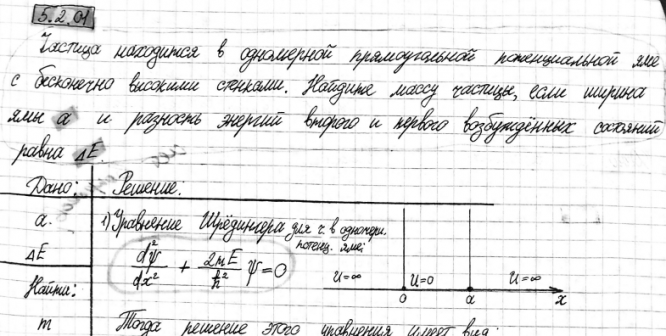 5.2.01
Частица находится в одномерной прямоугольной потенциальной яме
с бесконечно высокими стенками. Найдите массу частицы, если ширина
ямы a и разность энергий второго и первого возбуждённых состояний
равна ΔE.
Дано: Решение:
a. 1) Уравнение Шрёдингера для ч в одномерн.
потенц. яме:
ΔE d²ψ/dx² + 2mE/ħ² ψ = 0
U=∞ U=0 U=∞
Найти: 0 a x
m Тогда решение этого уравнения имеет вид: